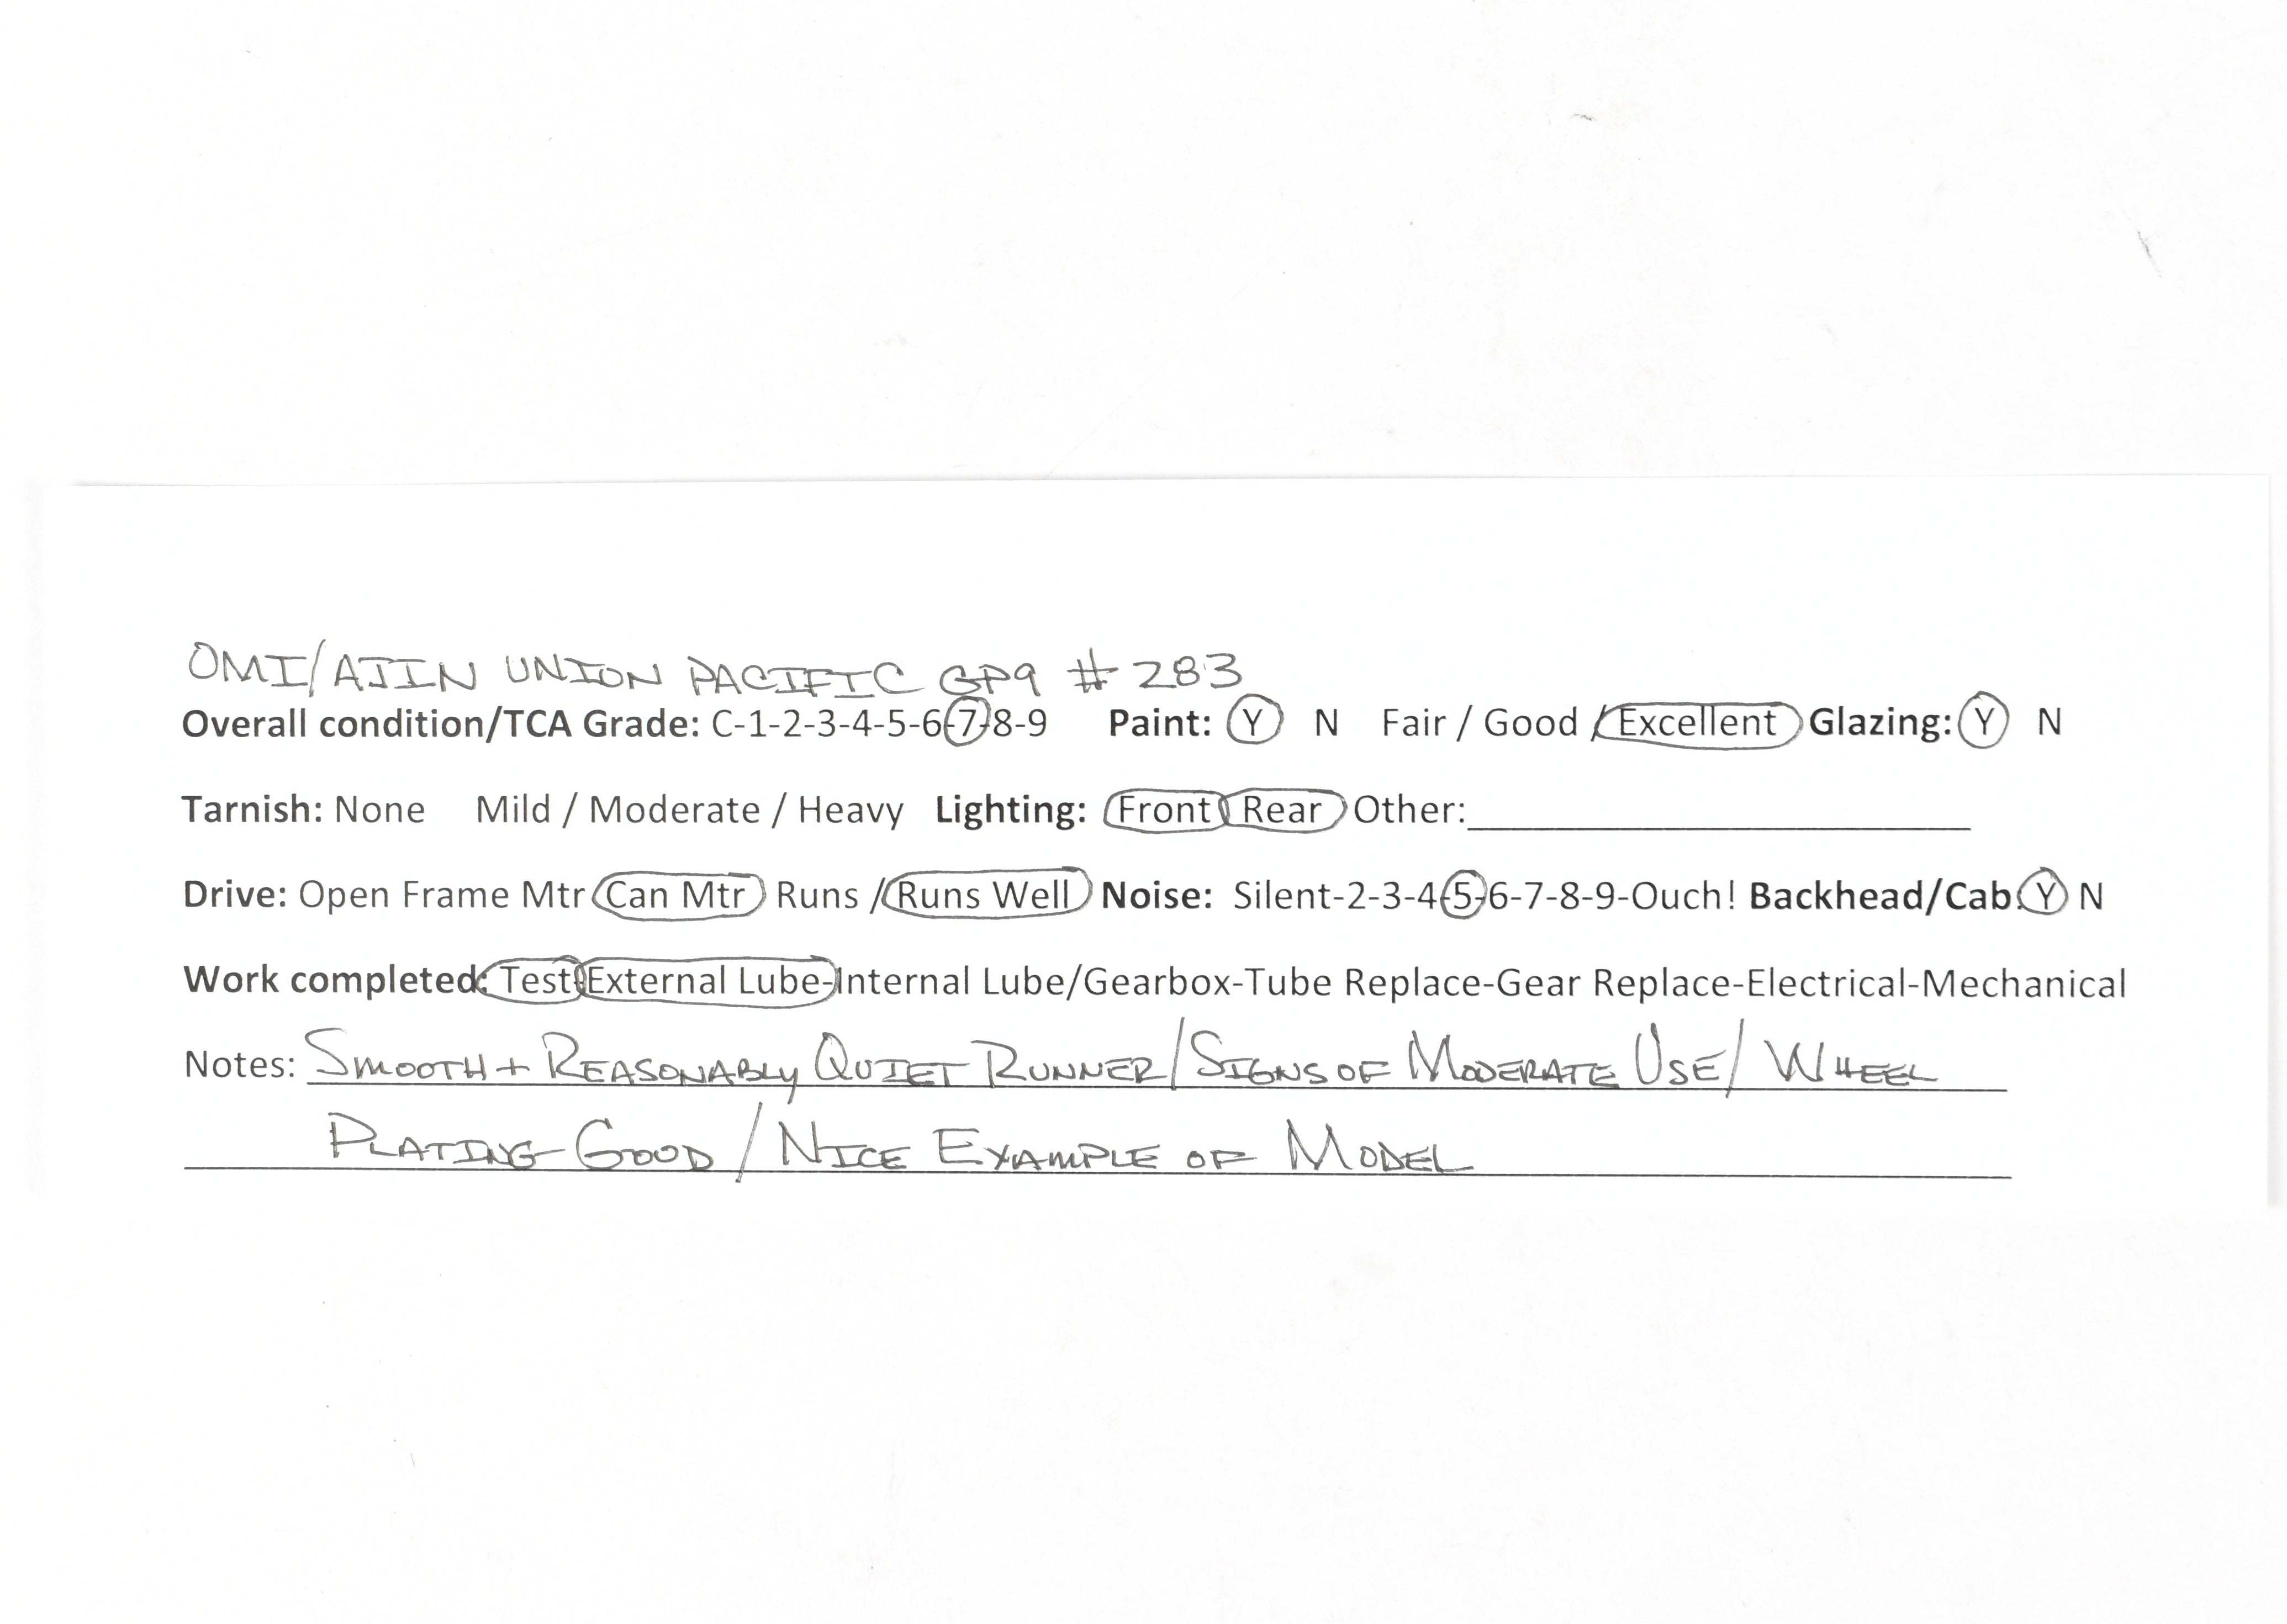 OMI/AJIN UNION PACIFIC GP9 # 283
Overall condition/TCA Grade: C-1-2-3-4-5-6-7-8-9 Paint: Y N Fair / Good / Excellent Glazing: Y N
Tarnish: None Mild / Moderate / Heavy Lighting: Front Rear Other:
Drive: Open Frame Mtr Can Mtr Runs / Runs Well Noise: Silent-2-3-4-5-6-7-8-9-Ouch! Backhead/Cab: Y N
Work completed: Test-External Lube-Internal Lube/Gearbox-Tube Replace-Gear Replace-Electrical-Mechanical
Notes: SMOOTH + REASONABLY QUIET RUNNER/SIGNS OF MODERATE USE/ WHEEL
PLATING-GOOD / NICE EXAMPLE OF MODEL